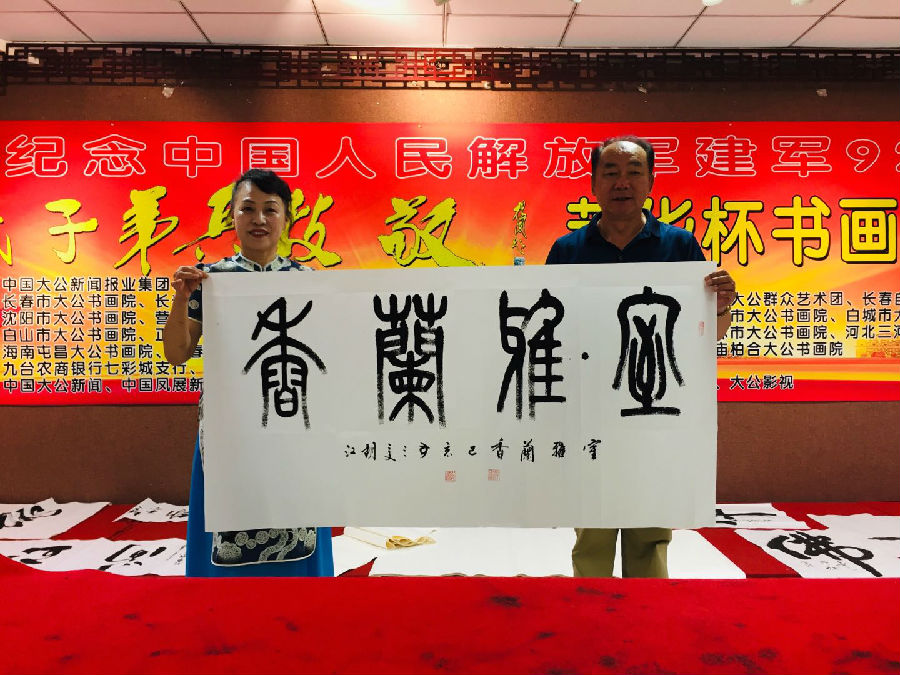 纪念中国人民解放军建军9
子弟兵 敬
杯书画
中国大公新闻报业集团
长春市大公书画院、长
沈阳市大公书画院、营
白山市大公书画院、正
海南屯昌大公书画院、
九台农商银行七彩城支行、
中国大公新闻、中国凤展新
大公群众艺术团、长春
市大公书画院、白城市
市大公书画院、河北三河
庙柏合大公书画院
、大公影视
室雅蘭香
室雅蘭香己亥